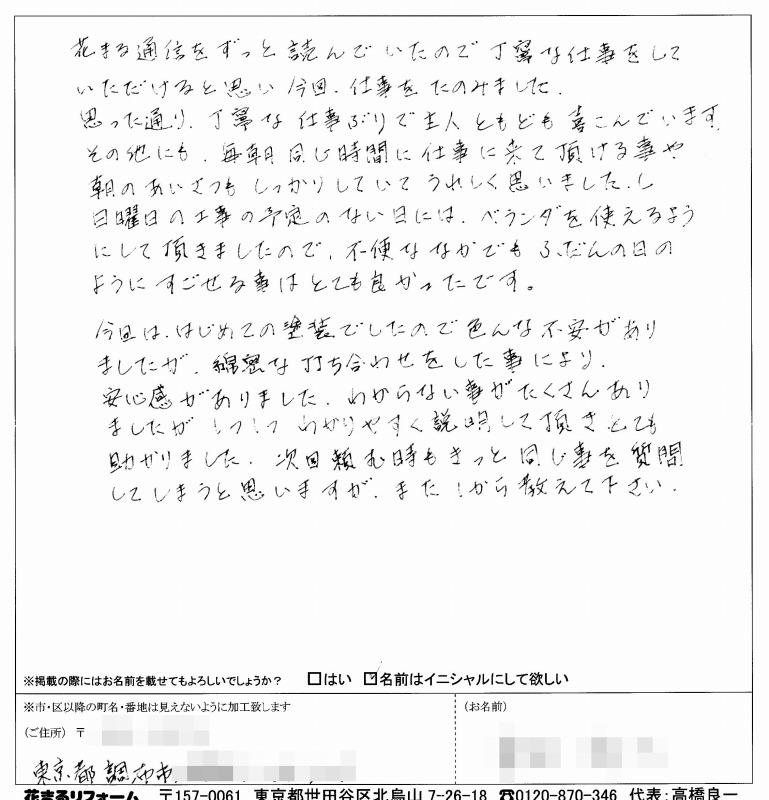 花まる通信をずっと読んでいたので丁寧な仕事をして
いただけると思い今回、仕事をたのみました。
思った通り、丁寧な仕事ぶりで主人ともども喜こんでいます。
その他にも、毎朝同じ時間に仕事に来て頂ける事や
朝のあいさつもしっかりしていてうれしく思いました。
日曜日の工事の予定のない日には、ベランダを使えるよう
にして頂きましたので、不便ななかでもふだんの日の
ようにすごせる事はとても良かったです。
今回は、はじめての塗装でしたので色んな不安があり
ましたが、綿密な打ち合わせをした事により、
安心感がありました。わからない事がたくさんあり
ましたが1つ1つわかりやすく説明して頂きとても
助かりました。次回頼む時もきっと同じ事を質問
してしまうと思いますが、また1から教えて下さい。
※掲載の際にはお名前を載せてもよろしいでしょうか? □はい ☑名前はイニシャルにして欲しい
※市・区以降の町名・番地は見えないように加工致します
(お名前)
(ご住所) 〒
東京都調布市
花まるリフォーム 〒157-0061 東京都世田谷区北烏山 7-26-18 ☎0120-870-346 代表:高橋良一